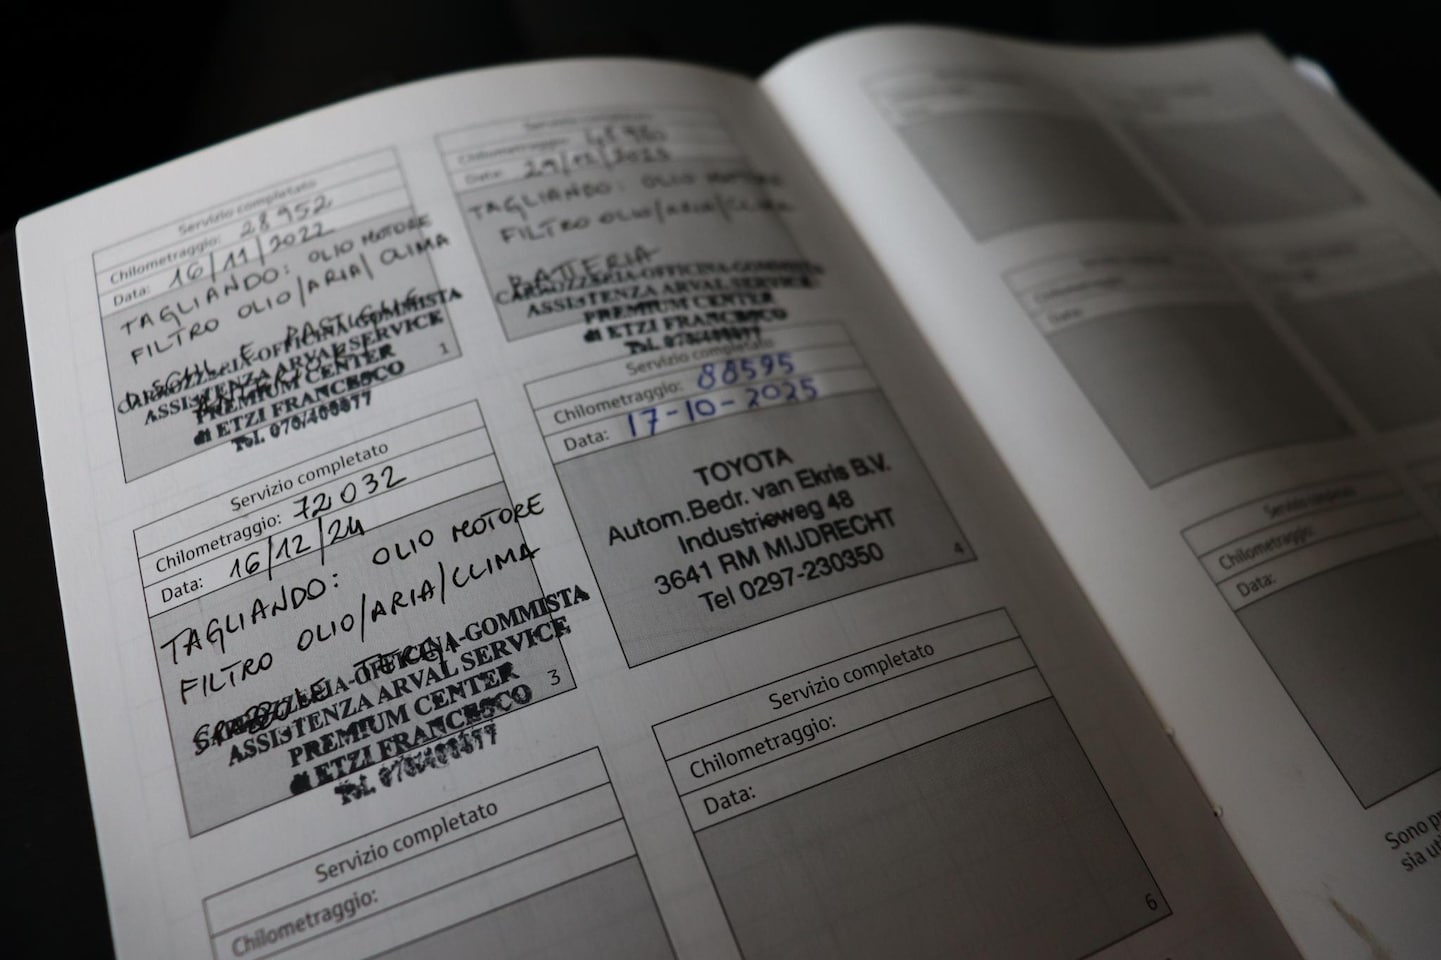 Servizio completato
Chilometraggio: 28952
Data: 16/11/2022
TAGLIANDO: OLIO MOTORE
FILTRO OLIO/ARIA/CLIMA
E PASTIGLIE
CARROZZERIA-OFFICINA-GOMMISTA
ASSISTENZA ARVAL SERVICE
PREMIUM CENTER
di ETZI FRANCESCO
1
Servizio completato
Chilometraggio:
Data:
TAGLIANDO: OLIO MOTORE
FILTRO OLIO/ARIA/CLIMA
BATTERIA
CARROZZERIA-OFFICINA-GOMMISTA
ASSISTENZA ARVAL SERVICE
PREMIUM CENTER
di ETZI FRANCESCO
Servizio completato
Chilometraggio: 72032
Data: 16/12/24
TAGLIANDO: OLIO MOTORE
FILTRO OLIO/ARIA/CLIMA
CARROZZERIA-OFFICINA-GOMMISTA
ASSISTENZA ARVAL SERVICE
PREMIUM CENTER
di ETZI FRANCESCO
3
Servizio completato
Chilometraggio: 88595
Data: 17-10-2025
TOYOTA
Autom.Bedr. van Ekris B.V.
Industrieweg 48
3641 RM MIJDRECHT
Tel 0297-230350
4
Servizio completato
Chilometraggio:
Servizio completato
Chilometraggio:
Data:
6
Chilometraggio:
Data:
Servizio completato
Chilometraggio:
Data:
Sono
sia